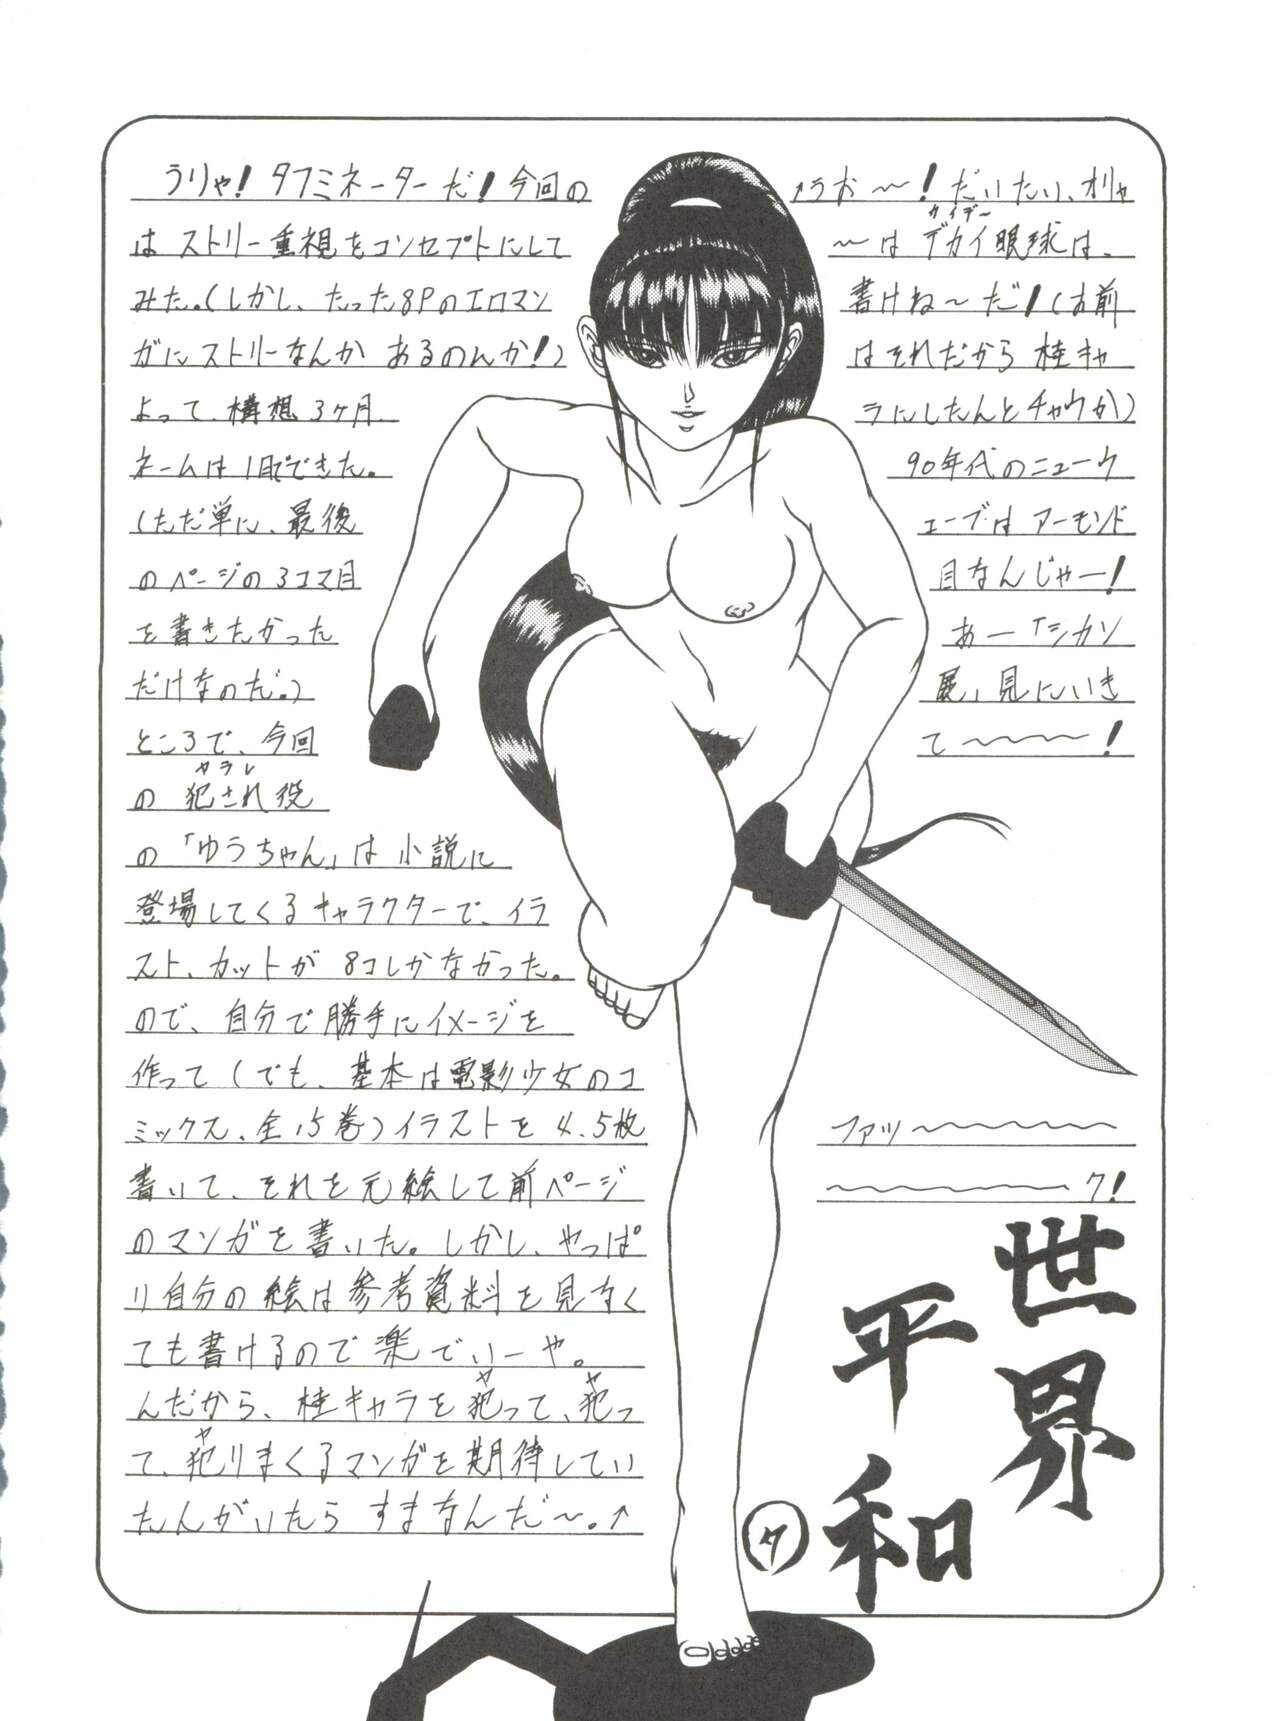 うりゃ！タフミネーターだ！今回の
はストリー重視をコンセプトにして
みた。（しかし、たった8Pのエロマン
ガにストリーなんかあるのんか！）
よって、構想3ケ月、
ネームは1日でできた。
（ただ単に、最後
のページの3コマ目
を書きたかった
だけなのだ。）
ところで、今回
の犯され役
ヤラレ
の「ゆうちゃん」は小説に
登場してくるキャラクターで、イラ
スト、カットが8コしかなかった。
ので、自分で勝手にイメージを
作って（でも、基本は電影少女のコ
ミックス、全15巻）イラストを4、5枚
書いて、それを元絵して前ページ
のマンガを書いた。しかし、やっぱ
り自分の絵は参考資料を見なく
ても書けるので楽でいーや。
んだから、桂キャラを犯って、犯っ
ヤ ヤ
て、犯りまくるマンガを期待してい
ヤ
たんがいたらすまなんだ〜。↑
↑うお〜！だいたい、オリャ
〜はデカイ眼球は、
書けね〜だ！（お前
はそれだから桂キャ
ラにしたんとチャウか）
90年代のニューウ
ェーブはアーモンド
目なんじゃー！
あー「シカソ
展」見にいき
て〜〜〜！
ファッ〜〜〜〜
〜〜〜〜ク！
世界
平和
タ